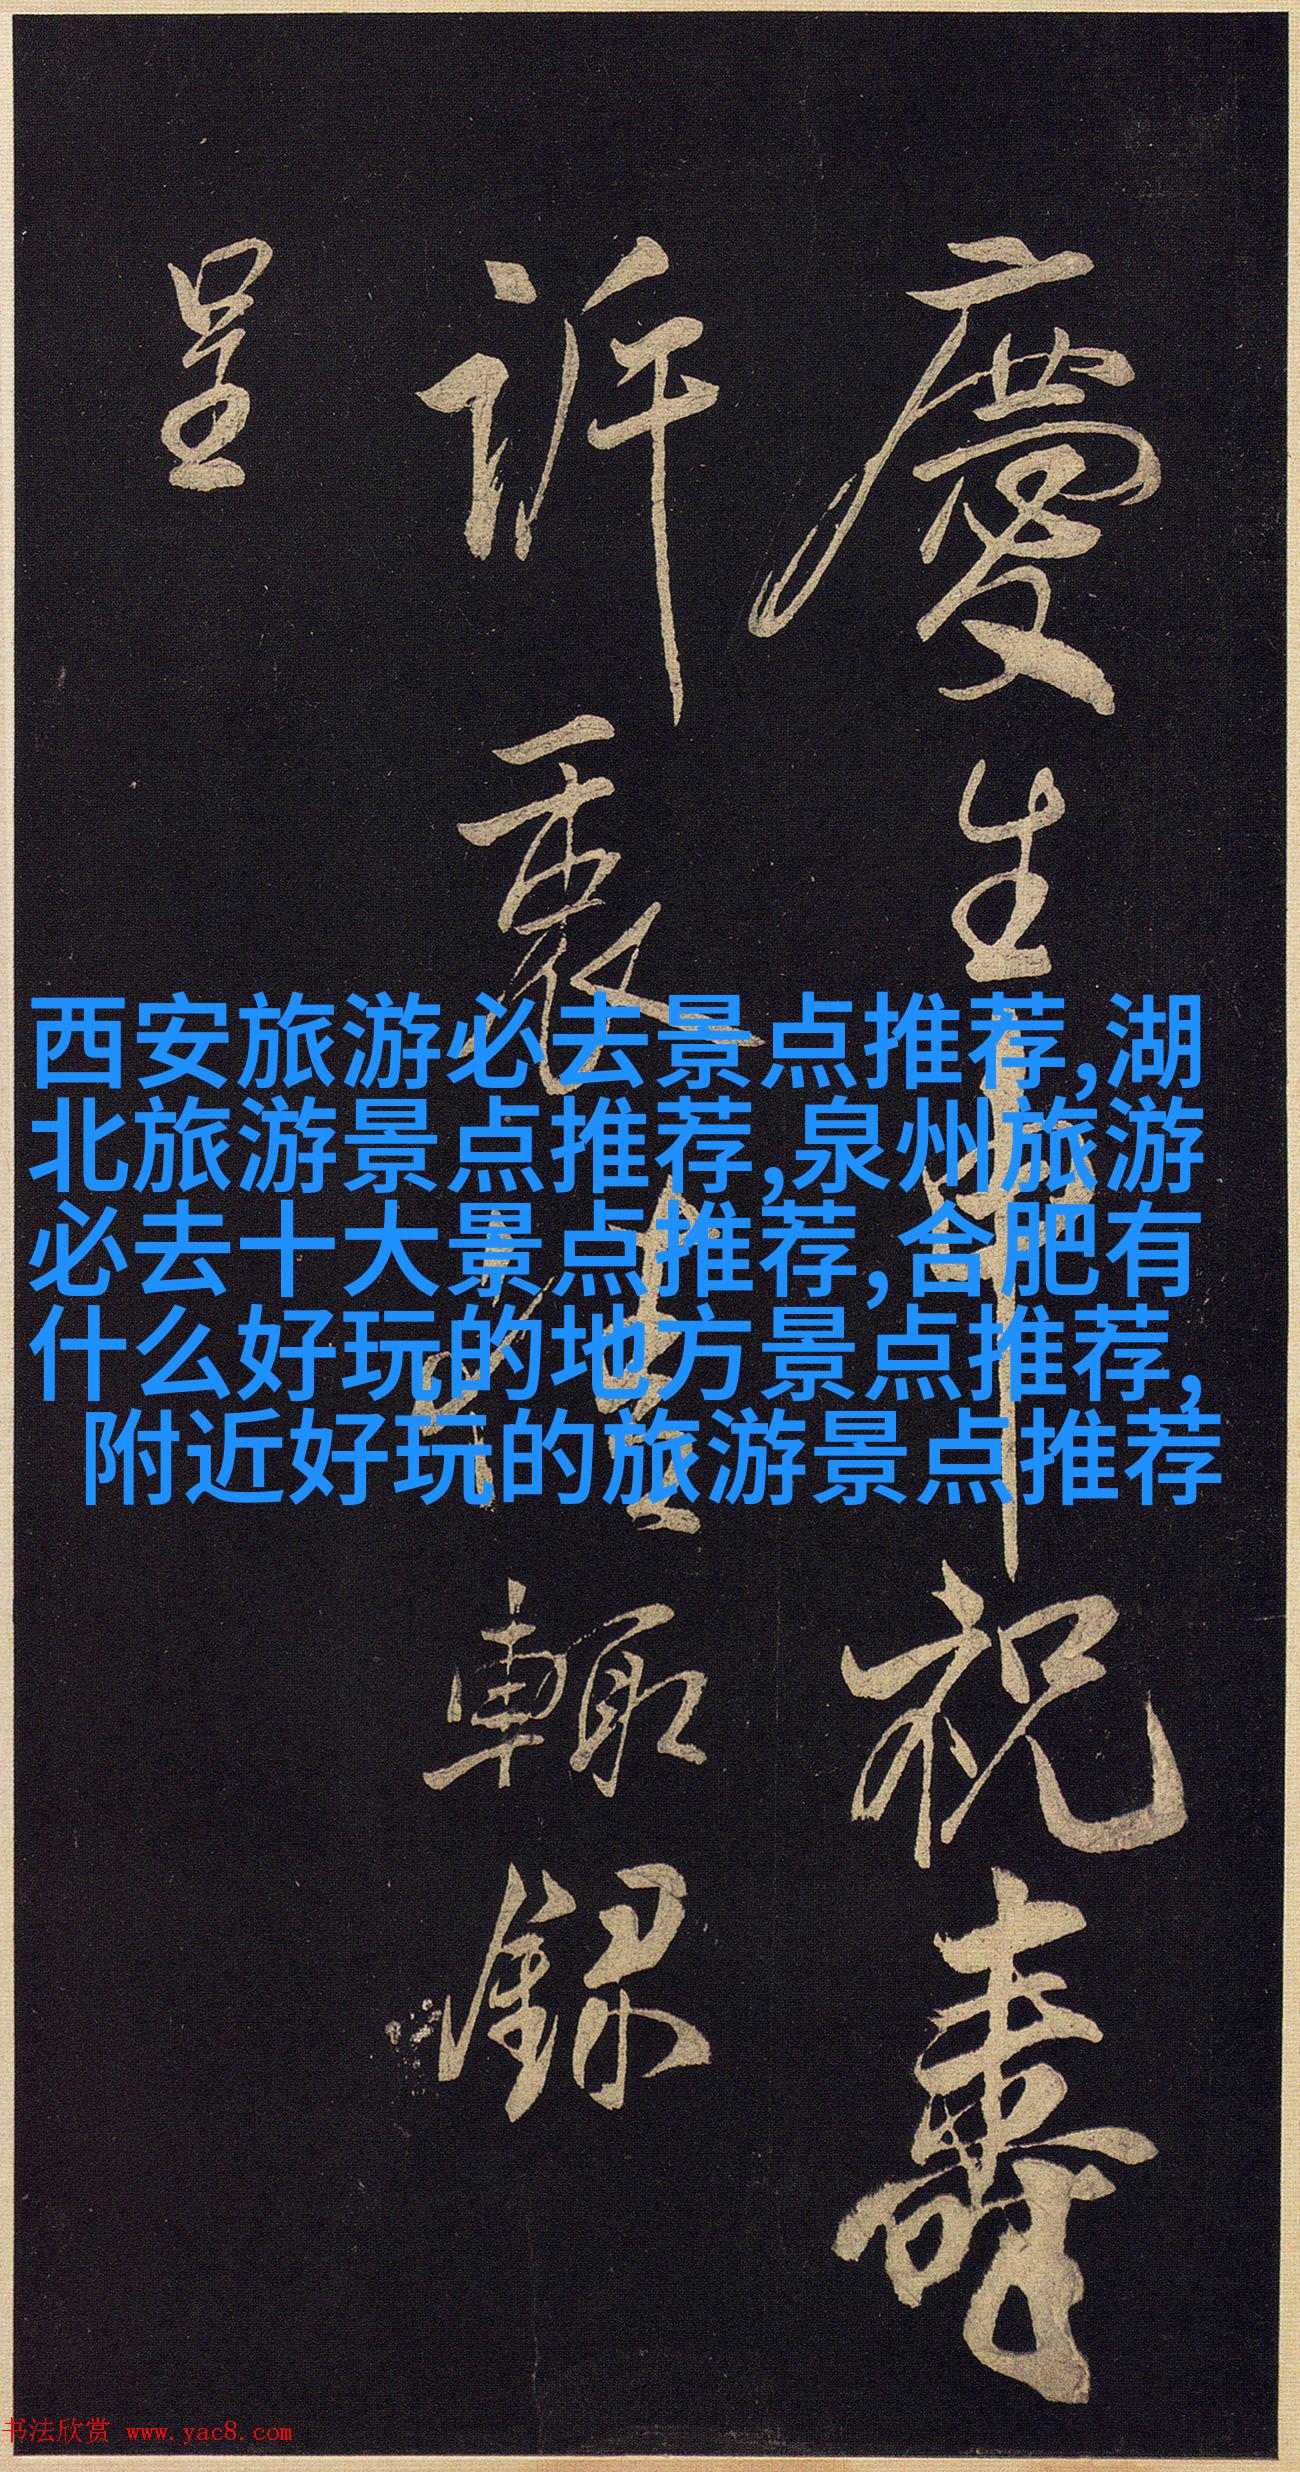 慶生申祝壽
訴衷情輒録
呈
西安旅游必去景点推荐,湖
北旅游景点推荐,泉州旅游
必去十大景点推荐,合肥有
什么好玩的地方景点推荐,
附近好玩的旅游景点推荐
书法欣赏 www.yac8.com